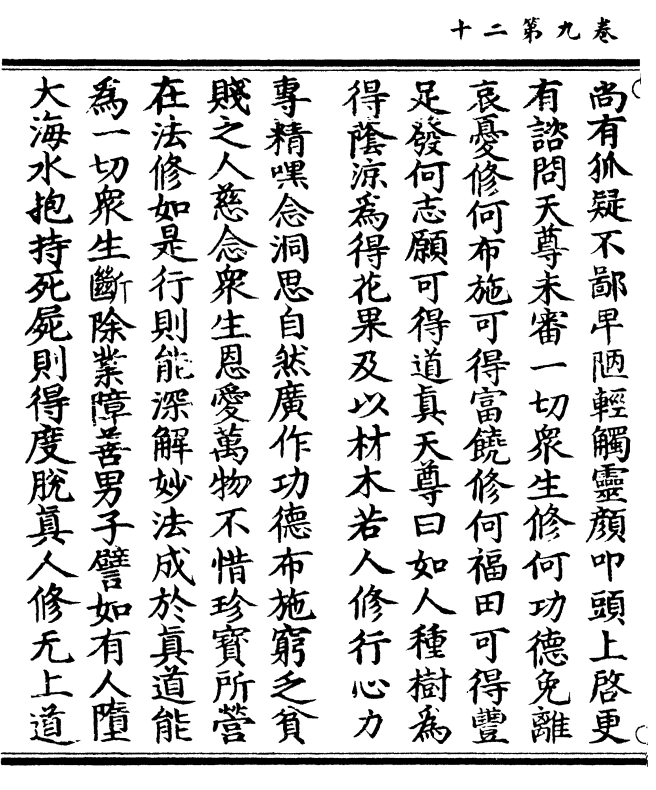 卷九第二十
尚有狐疑不鄙卑陋輕觸靈顏叩頭上啓更
有諮問天尊未審一切衆生修何功德免離
哀憂修何布施可得富饒修何福田可得豐
足發何志願可得道真天尊曰如人種樹為
得蔭涼為得花果及以材木若人修行心力
專精嘿念洞思自然廣作功德布施窮乏貧
賤之人慈念衆生恩愛萬物不惜珍寳所營
在法修如是行則能深解妙法成於真道能
為一切衆生斷除業障善男子譬如有人墮
大海水抱持死屍則得度脫真人修无上道